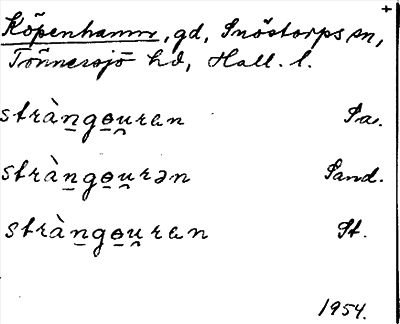 +
Köpenhamn, gd, Snöstorps sn,
Tönnersjö hd, Hall. l.
stràngɵuran Pa.
stràngɵurən Sand.
stràngɵuran St.
1954.